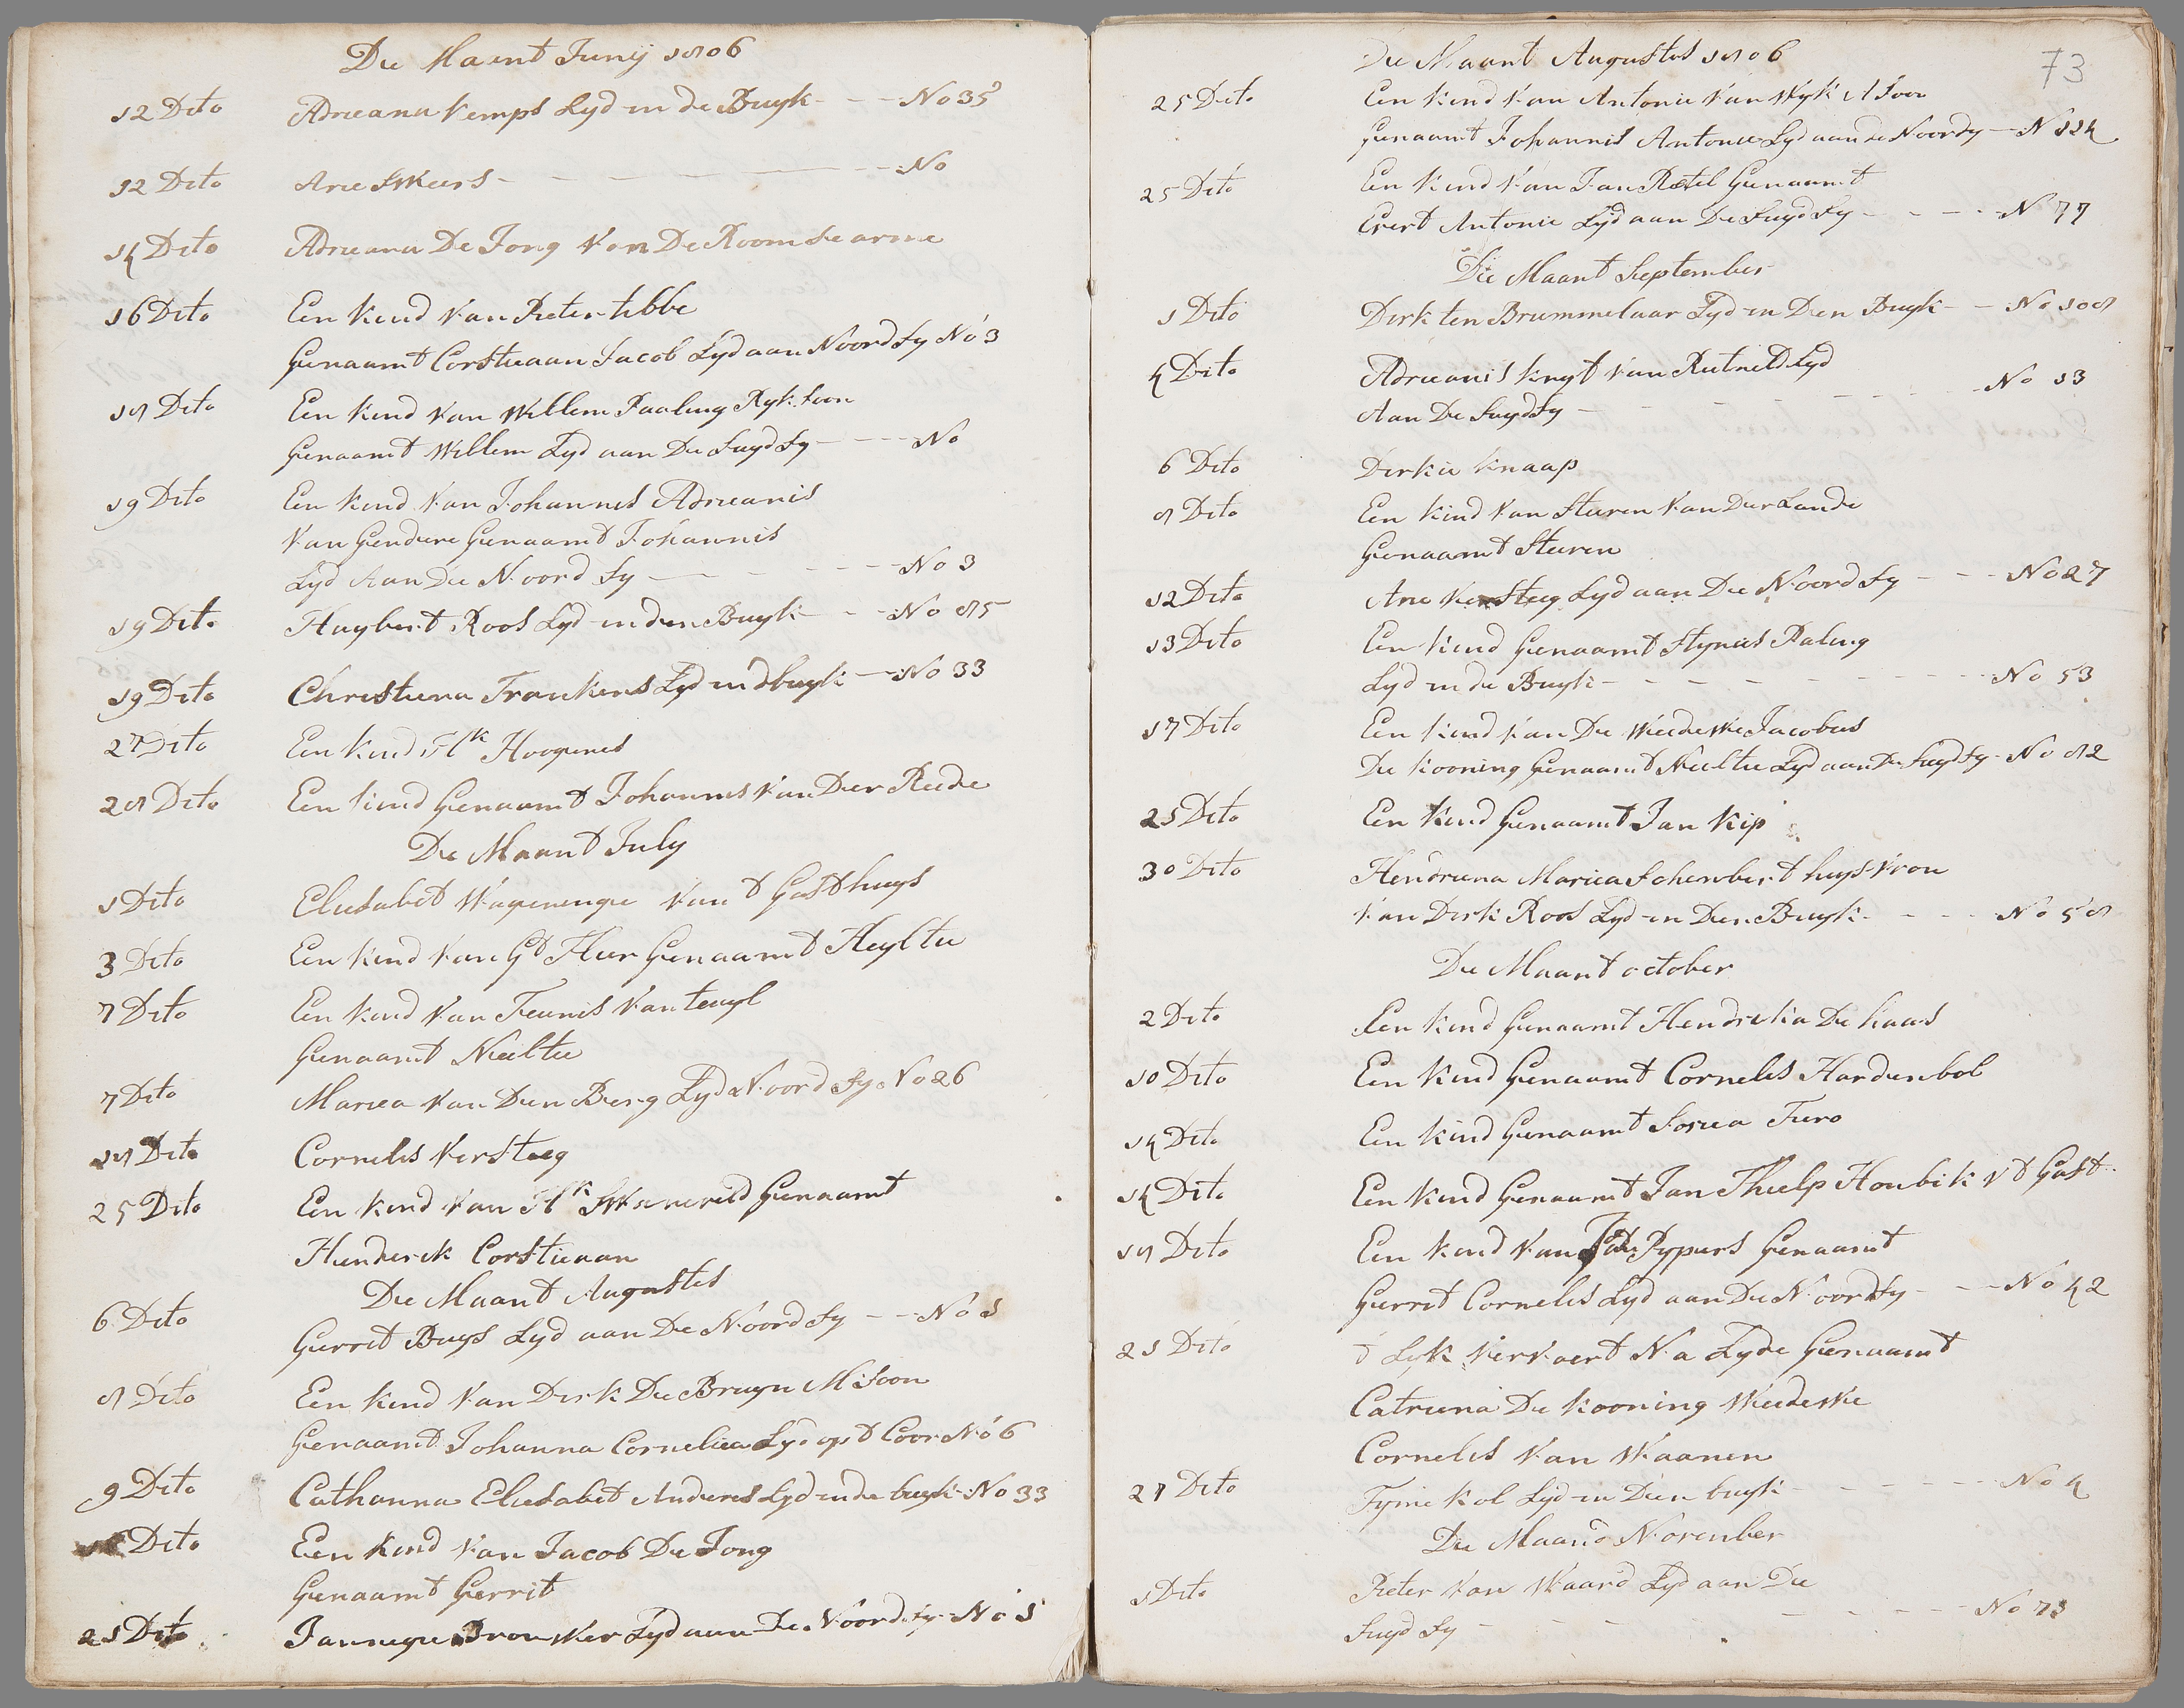 De Maent Junij 1806
12 Dito Adrieana Kemps Lyd in de Buyk - - - No 35
12 Dito Arie Skeers - - - No
14 Dito Adrieana De Jong Van De Roomse arme
16 Dito Een Kind Van Pieter tibbe
Genaamt Corstieaan Jacob Lyd aan Noord Sy No 3
18 Dito Een Kind Van Willem Paaling Ryk Soon
Genaamt Willem Lyd aan De Suyd Sy - - - No
19 Dito Een Kind Van Johannes Adrieanis
Van Gendere Genaamt Johannis
Lyd Aan De Noord Sy - - - No 3
19 Dito Huybert Roos Lyd in den Buyk - - No 85
19 Dito Christiena Frankens Lyd in dbuyk - No 33
27 Dito Een Kind Hk Hoogenes
28 Dito Een Kind Genaamt Johannis Van Der Reede
De Maant July
1 Dito Eliesabet Wagenenge Van t Gasthuys
3 Dito Een Kind Van Gt Fluer Genaamt Heyltie
7 Dito Een Kind Van Teunis Van tuyl
Genaamt Neeltie
7 Dito Mariea Van Den Berg Lyd Noord Sy. No 26
18 Dito Cornelis VerSteeg
25 Dito Een Kind Van Hk Genaamt
Henderick Corstieaan
De Maant Augustes
6 Dito Gerrit Buys Lyd aan De Noord Sy - - No 1
8 Dito Een Kind Van Dirk De Bruyn MSoon
Genaamt Johanna Corneliea Lyd opt Coor No 6
9 Dito Catharina Eliesabet Anderes Lyd in de buyk No 33
Dito Een Kind Van Jacob De Jong
Genaamt Gerrit
21 Dito Lyd aan De Noord Sy - No 1
De Maant Augustes 1806
73
25 Dito Een Kind Van Antonie Van Wyk A Soon
Genaamt Johannis Antonie Lyd aan de Noord Sy - N 124
25 Dito Een Kind Van Jan Retel Genaamt
Evert Antonie Lyd aan De Suyd Sy - - - N 77
De Maant September
1 Dito Dirk ten Brummelaar Lyd in Den Buyk - - No 108
4 Dito Adrieanis Knyf Van Lyd
Aan De Suyd Sy - - - No 13
6 Dito Derkie Knaap
8 Dito Een Kind Van Steven Van Der Lande
Genaamt Steven
12 Dito Arie VerSteeg Lyd aan De Noord Sy - - - No 27
13 Dito Een Kind Genaamt Stynies Paling
Lyd in de Buyk - - - No 53
17 Dito Een Kind Van De Weedewe Jacobus
De Kooning Genaamt Neeltie Lyd aan De Suyd Sy - No 82
25 Dito Een Kind Genaamt Jan Kip
30 Dito Hendriena Mariea Schenbert huys Vrou
Van Dirk Roos Lyd in Den Buyk - - - No 58
De Maant october
2 Dito Een Kind Genaamt Hendrieka De Haas
10 Dito Een Kind Genaamt Cornelis Hardenbol
14 Dito Een Kind Genaamt Sosiea Turo
14 Dito Een Kind Genaamt Jan Thielp Houbik Vt Gast
18 Dito Een Kind Van Jan Pypers Genaamt
Gerrit Cornelis Lyd aan De Noord Sy - - No 42
21 Dito t Lyk Vervoert Na Lyde Genaamt
Catriena De Kooning Weedewe
Cornelis Van Waanen
27 Dito Tymi Kol Lyd in Den buyk - - - No 4
De Maand November
1 Dito Pieter Van Waard Lyd aan De
Suyd Sy - - - No 73